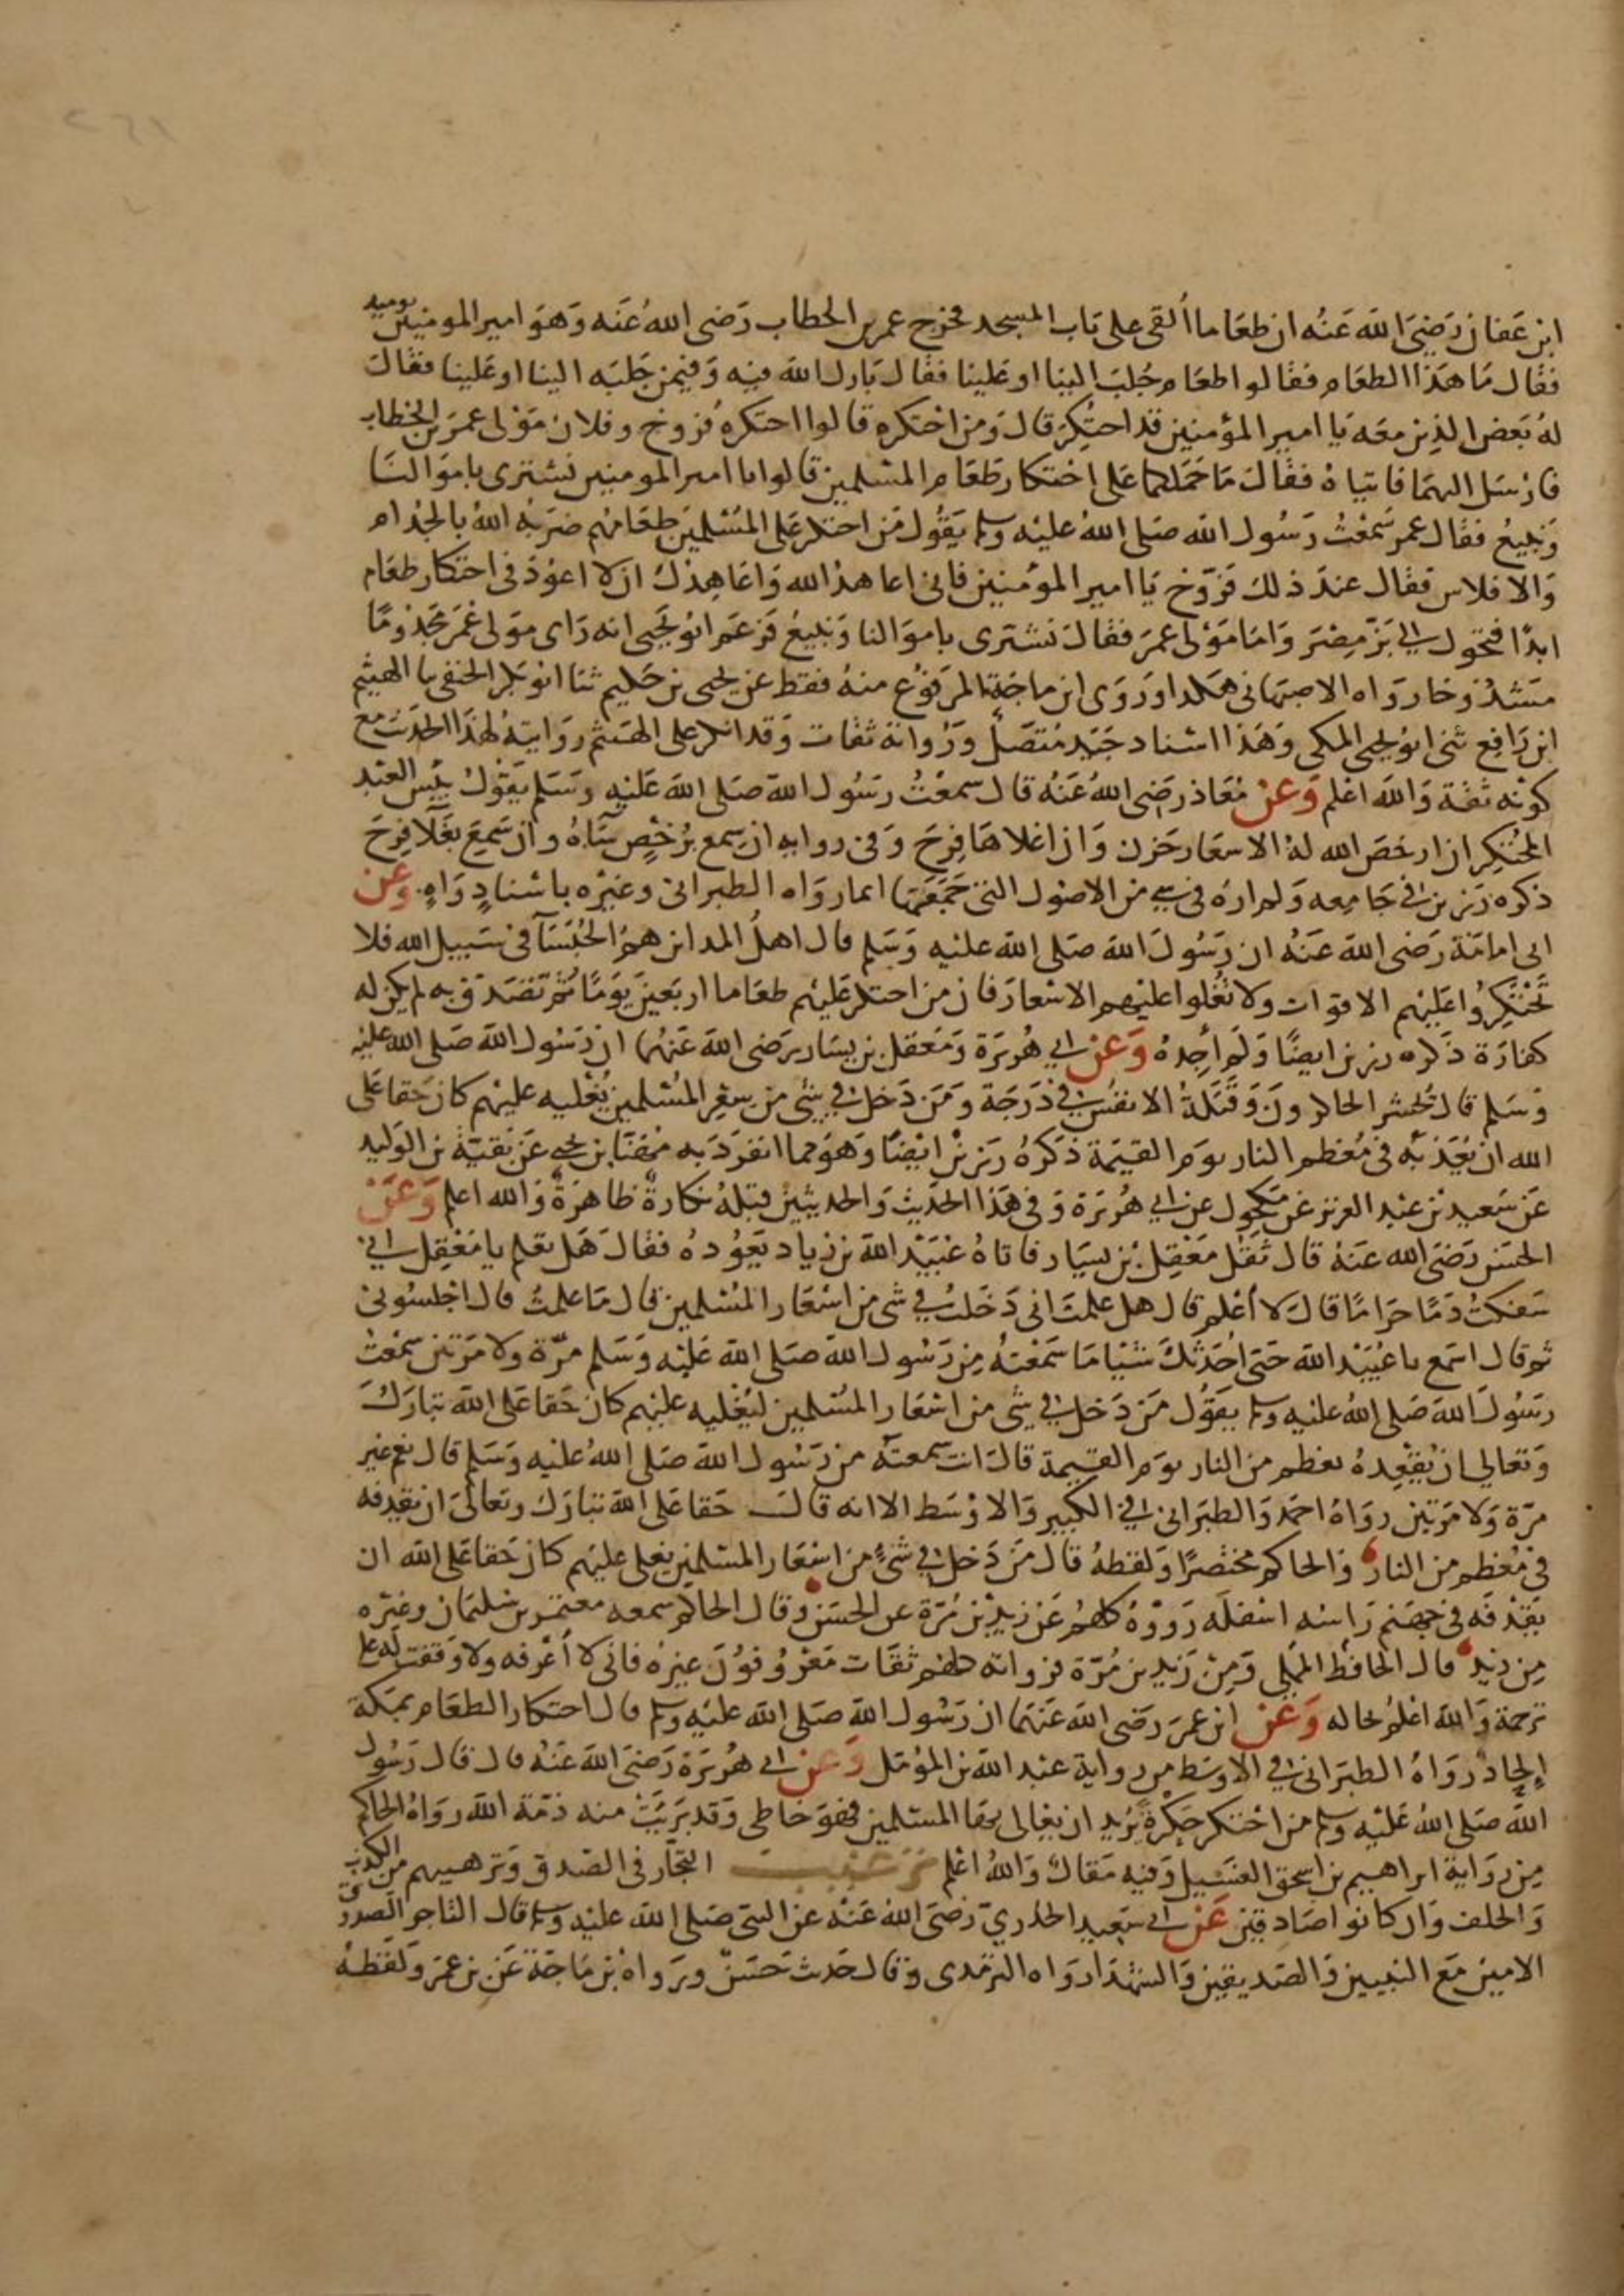 ابن عفان رَضيَ الله عَنْه ان طعَاما أُلقى على بَاب المسجد فخرج عمر بن الخطاب رَضى اللهُ عَنَه وَهوَ امير المومنين يوميد
فقال مَا هَذا الطعَام فقالوا طعَام جُلبَ الينا او عَلينا فقال بَارك الله فيه وَفيمن جَلبَه الينا او عَلينا فقالَ
لهُ بَعض الذين معَه يَا امير المؤمنين قد احتُكِرَ قالَ وَمن احْتكره قالوا احتكرهُ فروخ وفلان مَوْلى عمَر بن الخطاب
فارْسَل اليهمَا فاتيَاهُ فقالَ مَا حَمَلكما عَلى احْتكار طَعَام المسْلمين قالوا يا امير المومنين نشترى باموَالنَا
وَنبيعُ فقال عمر سَمعْتُ رَسُول الله صَلى اللهُ عليْه وسلم يَقُول مَن احتكر عَلى المسْلمين طعَامَهُم ضرَبهُ اللهُ بالجُذام
وَالافلاس فقال عندَ ذلكَ فرّوخ يَا امير المؤمنين فانى اعاهدُ الله وَاعَاهِدُكَ ان لا اعوُدَ فى احتكار طعَام
ابدًا فتحول الى بَزّ مِصْرَ وَامَا مَوْلى عمَر فقالَ نشترى باموَالنا وَنبيعُ فزعَم ابُو يَحيى انه رَاى موَلى عُمَر مَجْذومًا
مَشدُوخا رَوَاه الاصبهَانى هَكذا ورَوَى ابن ماجَة المرفوُع منهُ فقط عن يحيى بن حَكيم ثنا ابو بَكر الحنفى ثا الهيثم
ابن رَافع ثنى ابوُ يحيى المكى وَهَذا اسْناد جَيّد مُتصَل ورُواته ثقات وَقد انكر على الهَيثم رِوَايتهُ لهَذا الحَديث مع
كونه ثقة وَالله اعْلم وَعَنْ مُعَاذ رَضى اللهُ عَنْهُ قال سمعْتُ رَسُول اللهَ صَلى اللهَ عَليْهِ وَسَلم يَقُولُ بئْسَ العَبْد
المُحْتكِر ان ارخصَ الله لهُ الاسعَار حَزن وَان اغلاهَا فِرحَ وَفى روايه ان سِمع بُرخصٍ سَاءهُ وان سَمِعَ بغَلاَ فِرحَ
ذكره رَزين فى جَامِعه وَلم ارهُ فى شىء من الاصُول التى جَمَعَهَا انما رَوَاه الطبرانى وغيرْه باسْنادٍ وَاهٍ وَعَن
ابى امامَة رَضى اللهَ عَنْهُ ان رَسُولَ اللهَ صَلى اللهَ عليْهِ وَسَلم قال اهلُ المداين همُ الحُبَسَآ فى سَبيل الله فلا
تَحْتَكِرُوا عَليْهم الاقوات ولا تُغْلوا عليْهم الاسْعارَ فان من احتكر عَليْهم طعَاما اربَعينَ يَومًا ثم تصَدّق به لم يكن له
كفارَة ذَكره رزين ايضًا وَلم أجِدهُ وَعَنْ ابى هُريَرة وَمَعقل بن يسَار رَضى اللهَ عَنهُمَا ان رَسُول اللهَ صَلى الله عليْه
وَسَلم قال يُحْشر الحاكرونَ وَقَتَلةُ الانفُسِ فى دَرَجَة وَمَن دَخل فى شى من سِعْرِ المُسْلمين يُغليه عليْهم كان حَقا عَلى
الله ان يُعَذبَهُ فى مُعْظم النار يوَم القيَمة ذَكرهُ رَزين ايضًا وَهوَ مما انفرَدَ به مُهَنا بن يحيى عَن بَقيّة بن الوَليد
عَن سَعيد بن عبْد العزيز عَن مَكحُول عن ابى هُريرَة وَفى هَذا الحَديث وَالحديثين قبْلهُ نكارةٌ ظاهرَةٌ وَالله اعلم وَعَنْ
الحسَن رَضىَ الله عَنهُ قال ثَقُل مَعْقِل بْن يسَيار فاتاهُ عُبَيْد اللهَ بن زياد يَعوُدهُ فقالَ هَل تعلم يا مَعْقِل انى
سَفكتُ دَمًا حرَامًا قالَ لا أعْلم قال هل علمتَ انى دَخَلتُ فى شى من اسْعَار المُسْلمين قال مَا علمتُ قال اجْلسُونى
ثم قال اسْمع يا عُبَيْد اللهَ حَتى احَدثكَ شيْئا مَا سَمعْتهُ من رَسُول اللهَ صَلى اللهَ عَليْه وَسَلم مرّة ولا مَرتين سمعْتُ
رسَولَ اللهَ صَلى اللهُ عليْهِ وسلم يقوُل مَن دَخل فى شى من اسْعَار المُسْلمين ليُغْليه عليهم كان حَقا عَلى اللهَ تبارَكَ
وَتعَالى ان يُقْعِدهُ بعظم من النار يوَم القيمة قالَ انت سمعتَهُ من رَسُول اللهَ صَلى اللهُ عليْه وَسَلم قال نعم غير
مرّة وَلا مَرّتين روَاهُ احمَد وَالطبَرانى فى الكبير وَالاوْسَط الا انه قالَ حَقا عَلى اللهَ تبَارَكَ وتعَالىَ ان يقدفه
فى مُعْظم من النار وَالحاكم مختصَرًا وَلفظهُ قال مَنْ دَخل فى شئ من اسْعَار المسْلمين يغلى عليْهم كان حَقا عَلى اللهَ ان
يَقذفَه فى جهَنم رَاسُه اسْفلَه رَووْهُ كلهُم عَن زيد بْن مُرّة عن الحسَن وقال الحاكم سمعه معتمر بن سُليَمان وغيْره
مِن زيد قال الحَافظ المُمْلى وَمَنْ زَيد بن مُرّة فرواته كلهم ثقَات مَعْرُوفوُنَ غيره فانى لا أعْرفه ولا وَقفت له على
ترجمة وَاللهَ اعْلمُ بحاله وَعَن ابن عُمَر رَضى اللهَ عَنهَمَا ان رَسُول اللهَ صَلى اللهَ عليْهِ وسلم قال احتكار الطعَام بمَكة
إلحاد رَوَاهُ الطبَرانى فى الاوسَط من رواية عبْد اللهَ بن المؤمّل وَعَن ابى هُريَرة رَضىَ اللهَ عَنْهُ قال قال رَسُول
اللهَ صَلى اللهُ عَليْه وسلم من احْتكر حَكْرةً يُريد ان يغالى بهَا المسْلمين فهوَ خَاطى وَقد بَريَتْ منه ذمّة اللهَ روَاهُ الحاكم
مِن روَاية ابراهيم بن اسحق الغسَيل وَفيه مَقال وَاللهُ اعْلم ترغيب التجّار فى الصّدق وَترهيبهم من الكذب
وَالحلف وَان كانوا صَادقين عَن ابى سَعيد الخدرىّ رَضىَ الله عَنْهُ عن النبّى صَلى اللهَ عليْه وسلم قال التّاجر الصّدوق
الامين مَع النبيين وَالصّديقين وَالشهدَا رَوَاه الترمدى وَقال حَديث حَسَنٌ ورَوَاهُ بْن مَاجَة عَن بن عمَر وَلفظهُ